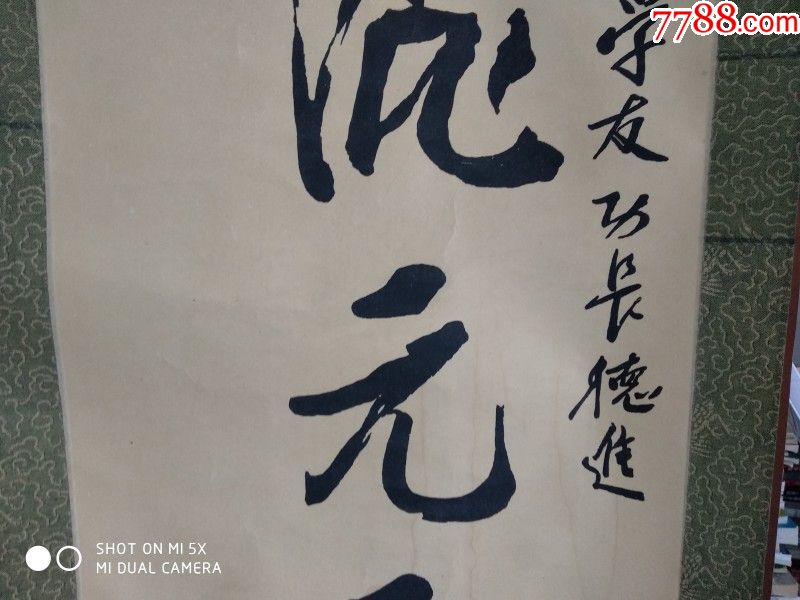 7788.com
学友功长德進
元
SHOT ON MI 5X
MI DUAL CAMERA